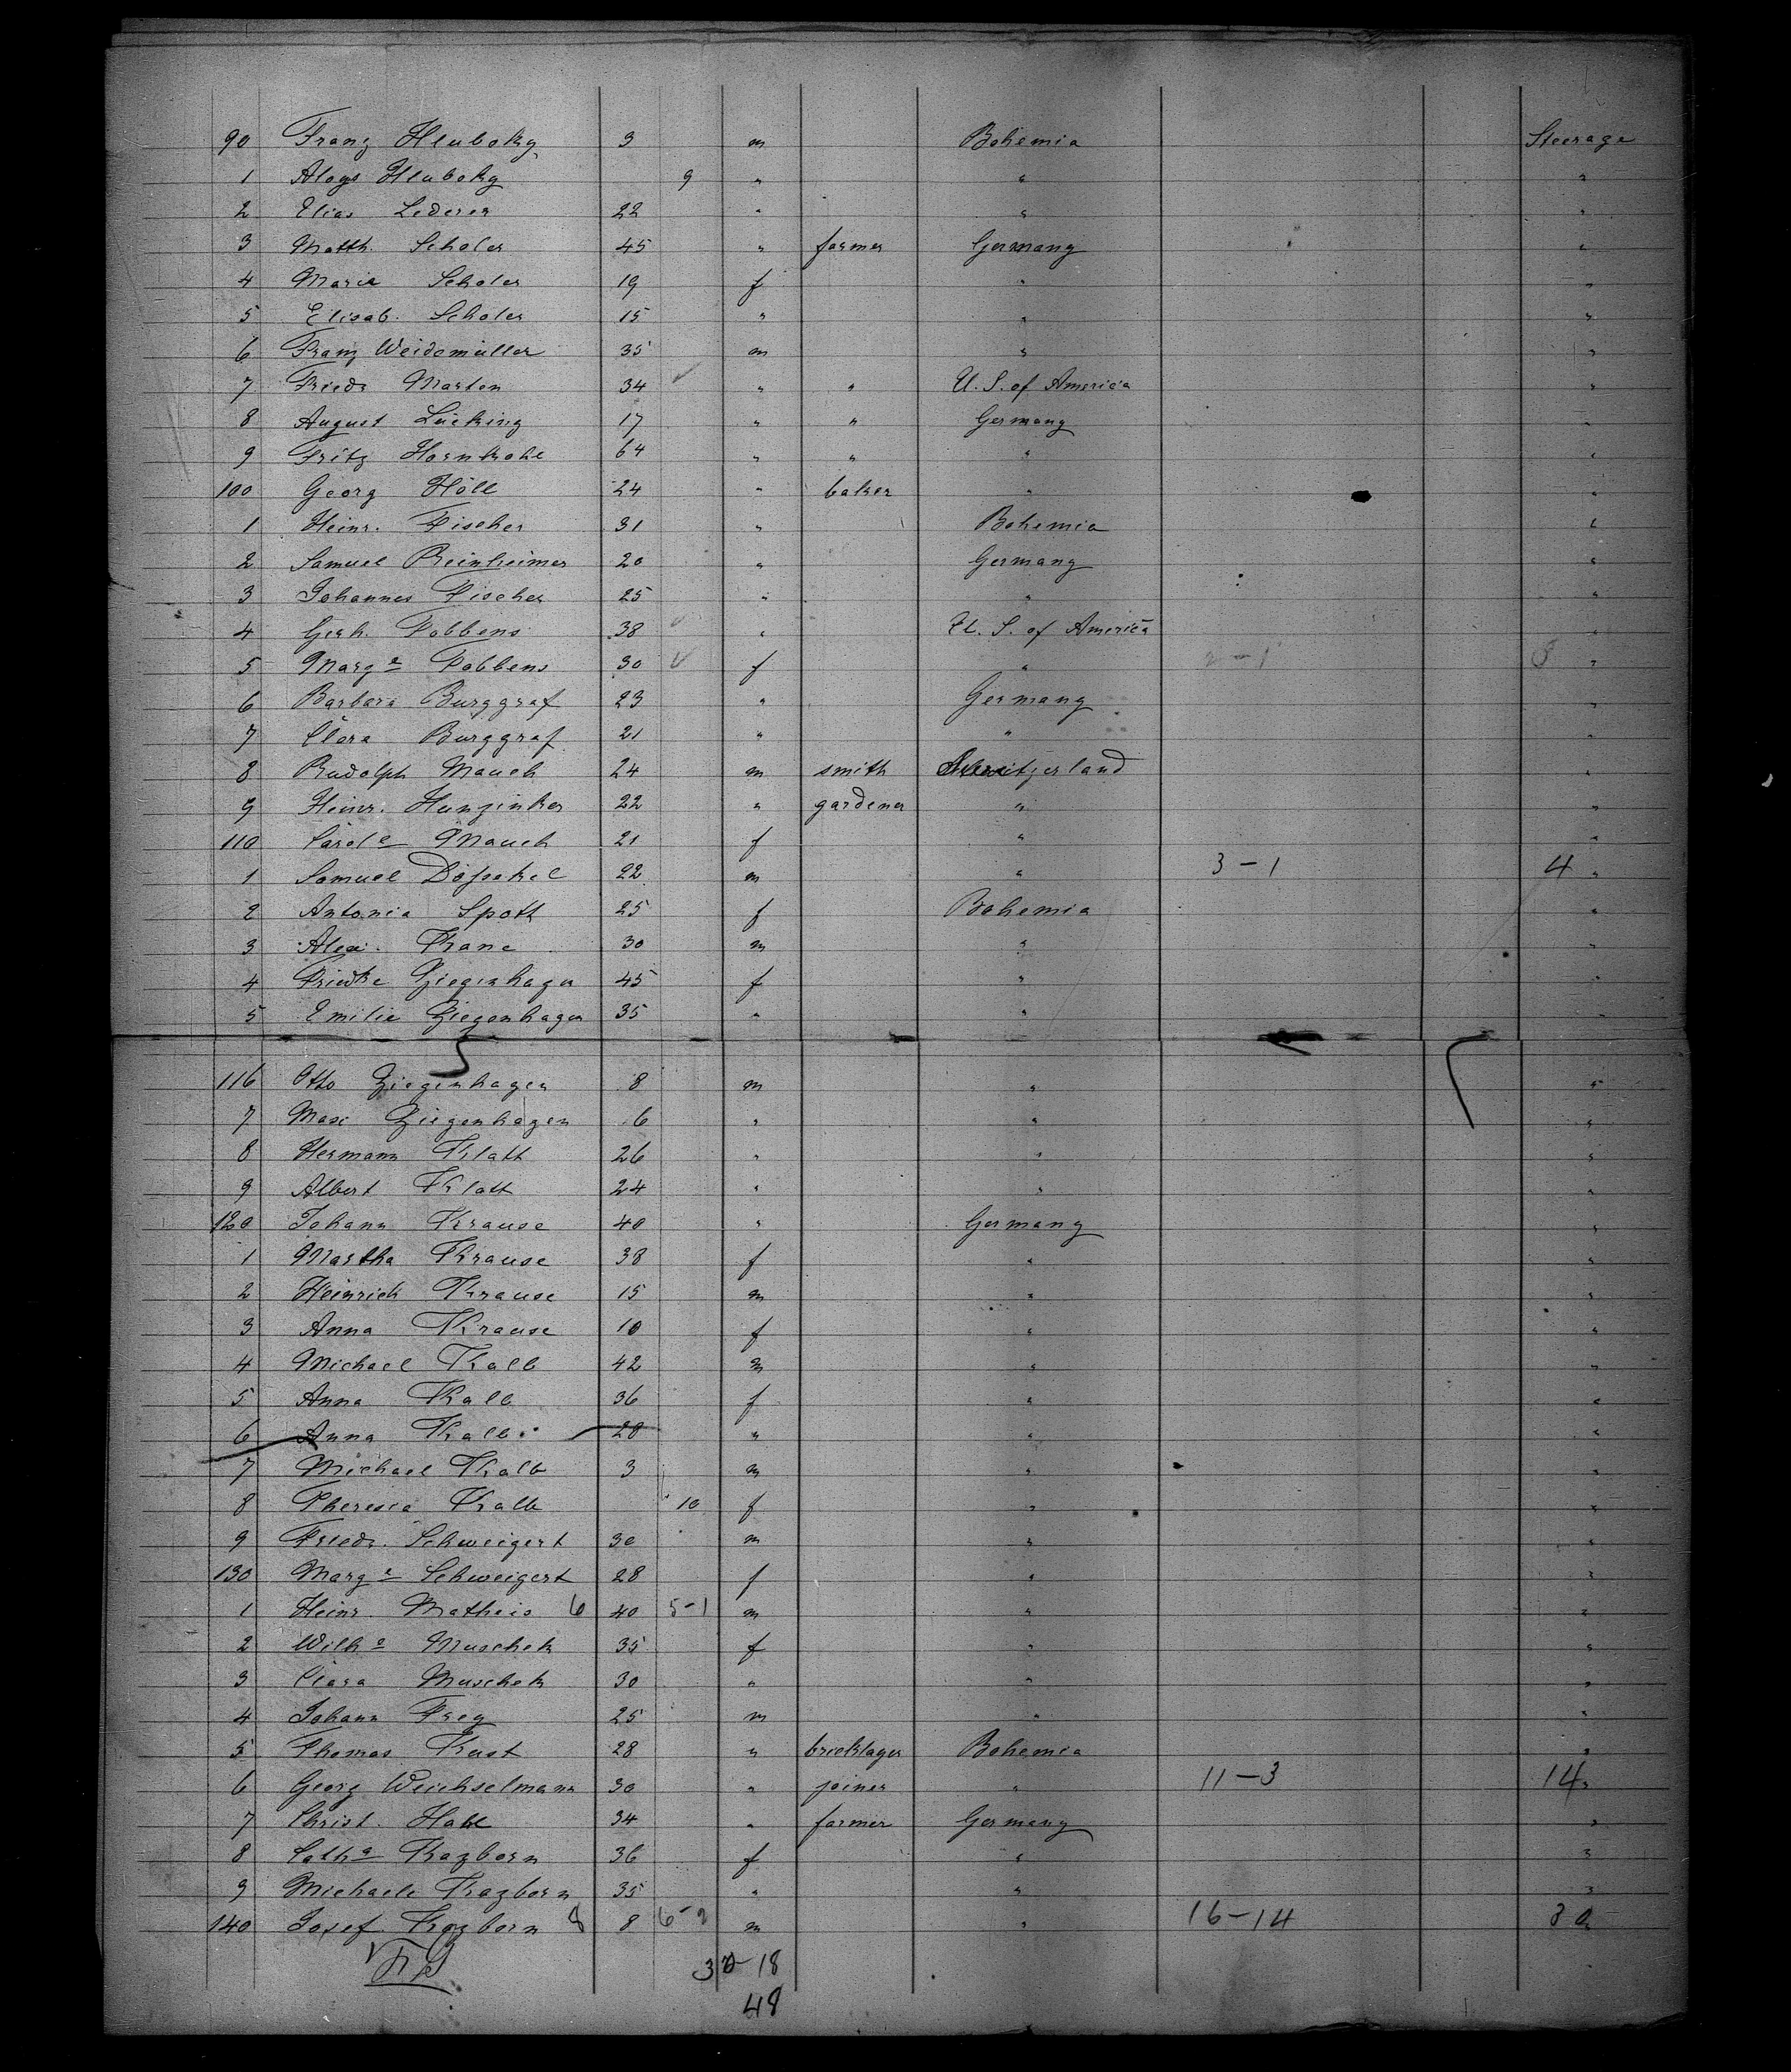 90 Franz Hluboky 3 m Bohemia Steerage
1 Aloys Hluboky 9 " " "
2 Elias Lederer 22 " " "
3 Matth. Scholer 45 " farmer Germany "
4 Marie Scholer 19 f " "
5 Elisab. Scholer 15 " " "
6 Franz Weidemüller 35 m " "
7 Friedr Marten 34 " " U. S. of America "
8 August Lücking 17 " " Germany "
9 Fritz Hornkohl 64 " " " "
100 Georg Höll 24 " baker " "
1 Heinr. Fischer 31 " Bohemia "
2 Samuel Reinheimer 20 " Germany "
3 Johannes Fischer 25 " " "
4 Gerh. Fobbens 38 " U. S. of America "
5 Marg e Fobbens 30 f " 2-1 3 "
6 Barbara Burggraf 23 " Germany "
7 Clara Burggraf 21 " " "
8 Rudolph Mauch 24 m smith Switzerland "
9 Heinr. Hunzinker 22 " gardener " "
110 Carol e Mauch 21 f " "
1 Samuel Dössekel 22 m " 3-1 4 "
2 Antonia Spoth 25 f Bohemia "
3 Alex. Krane 30 m " "
4 Friedke Ziegenhagen 45 f " "
5 Emilie Ziegenhagen 35 " " "
116 Otto Ziegenhagen 8 m " "
7 Max Ziegenhagen 6 " " "
8 Hermann Klatt 26 " " "
9 Albert Klatt 24 " " "
120 Johann Krause 40 " Germany "
1 Martha Krause 38 f " "
2 Heinrich Krause 15 m " "
3 Anna Krause 10 f " "
4 Michael Kalb 42 m " "
5 Anna Kalb 36 f " "
6 Anna Kalb 28 " " "
7 Michael Kalb 3 m " "
8 Theresia Kalb 10 f " "
9 Friedr. Schweigert 30 m " "
130 Marg e Schweigert 28 f " "
1 Heinr. Matheis 6 40 5-1 m " "
2 Wilh e Muschek 35 f " "
3 Clara Muschek 30 " " "
4 Johann Frey 25 m " "
5 Thomas Kust 28 " bricklayer Bohemia "
6 Georg Weichselmann 30 " joiner " 11-3 14 "
7 Christ. Hahl 34 " farmer Germany "
8 Cath a Krazborn 36 f " "
9 Michaele Krazborn 35 " " "
140 Josef Krazborn 8 8 6-2 m " 16-14 30 "
30-18
48